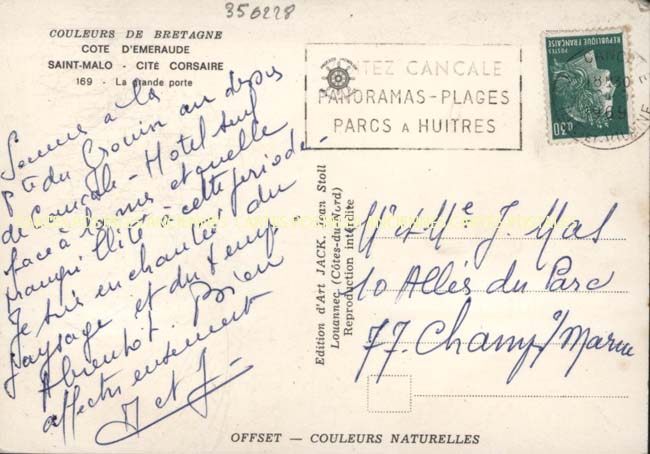 350228
COULEURS DE BRETAGNE
COTE D'EMERAUDE
SAINT-MALO - CITÉ CORSAIRE
169 - La grande porte
Somme à la
Pte du Grouin au dessus
de Cancale - Hotel seul
face à la mer et quelle
tranquillité - cette période
Je suis enchantée du
paysage et du temps
A bientot. Bien
affectueusement
J et J
TEZ CANCALE
PANORAMAS-PLAGES
PARCS A HUITRES
CANCALE
REPUBLIQUE FRANÇAISE
0,30
Edition d'Art JACK, Jean Stoll
Louannec (Côtes-du-Nord)
Reproduction interdite
Mr et Me J. Mas
10 Allés du Parc
77. Champs/Marne
OFFSET — COULEURS NATURELLES